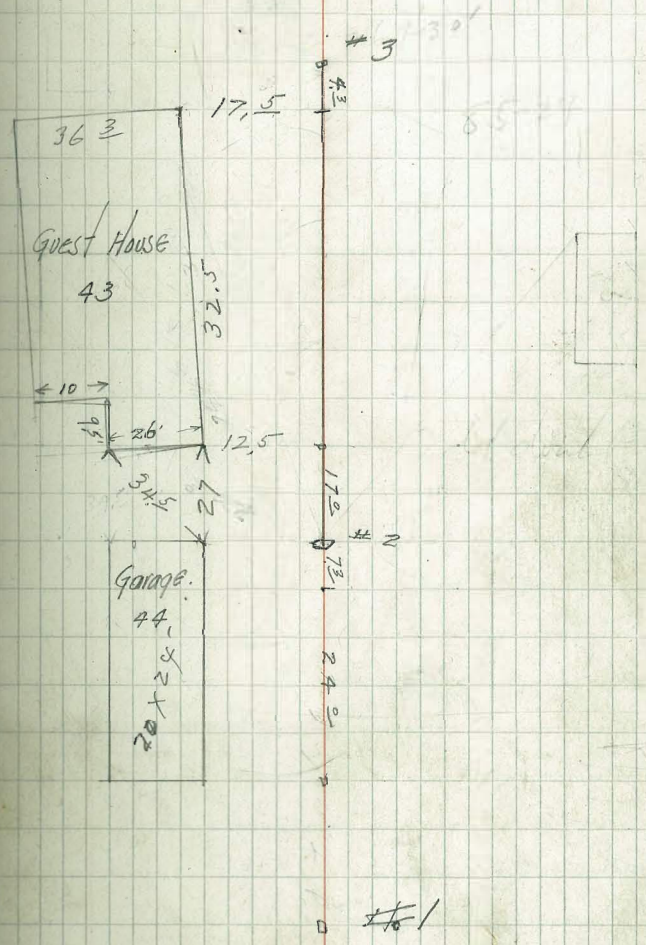 # 3
4.3
17,5
36 3
Guest House
43
32.5
10
9.5'
26'
12,5
34.5
27
17 0
# 2
7 3
Garage.
44
20 x 24
24 0
# 1